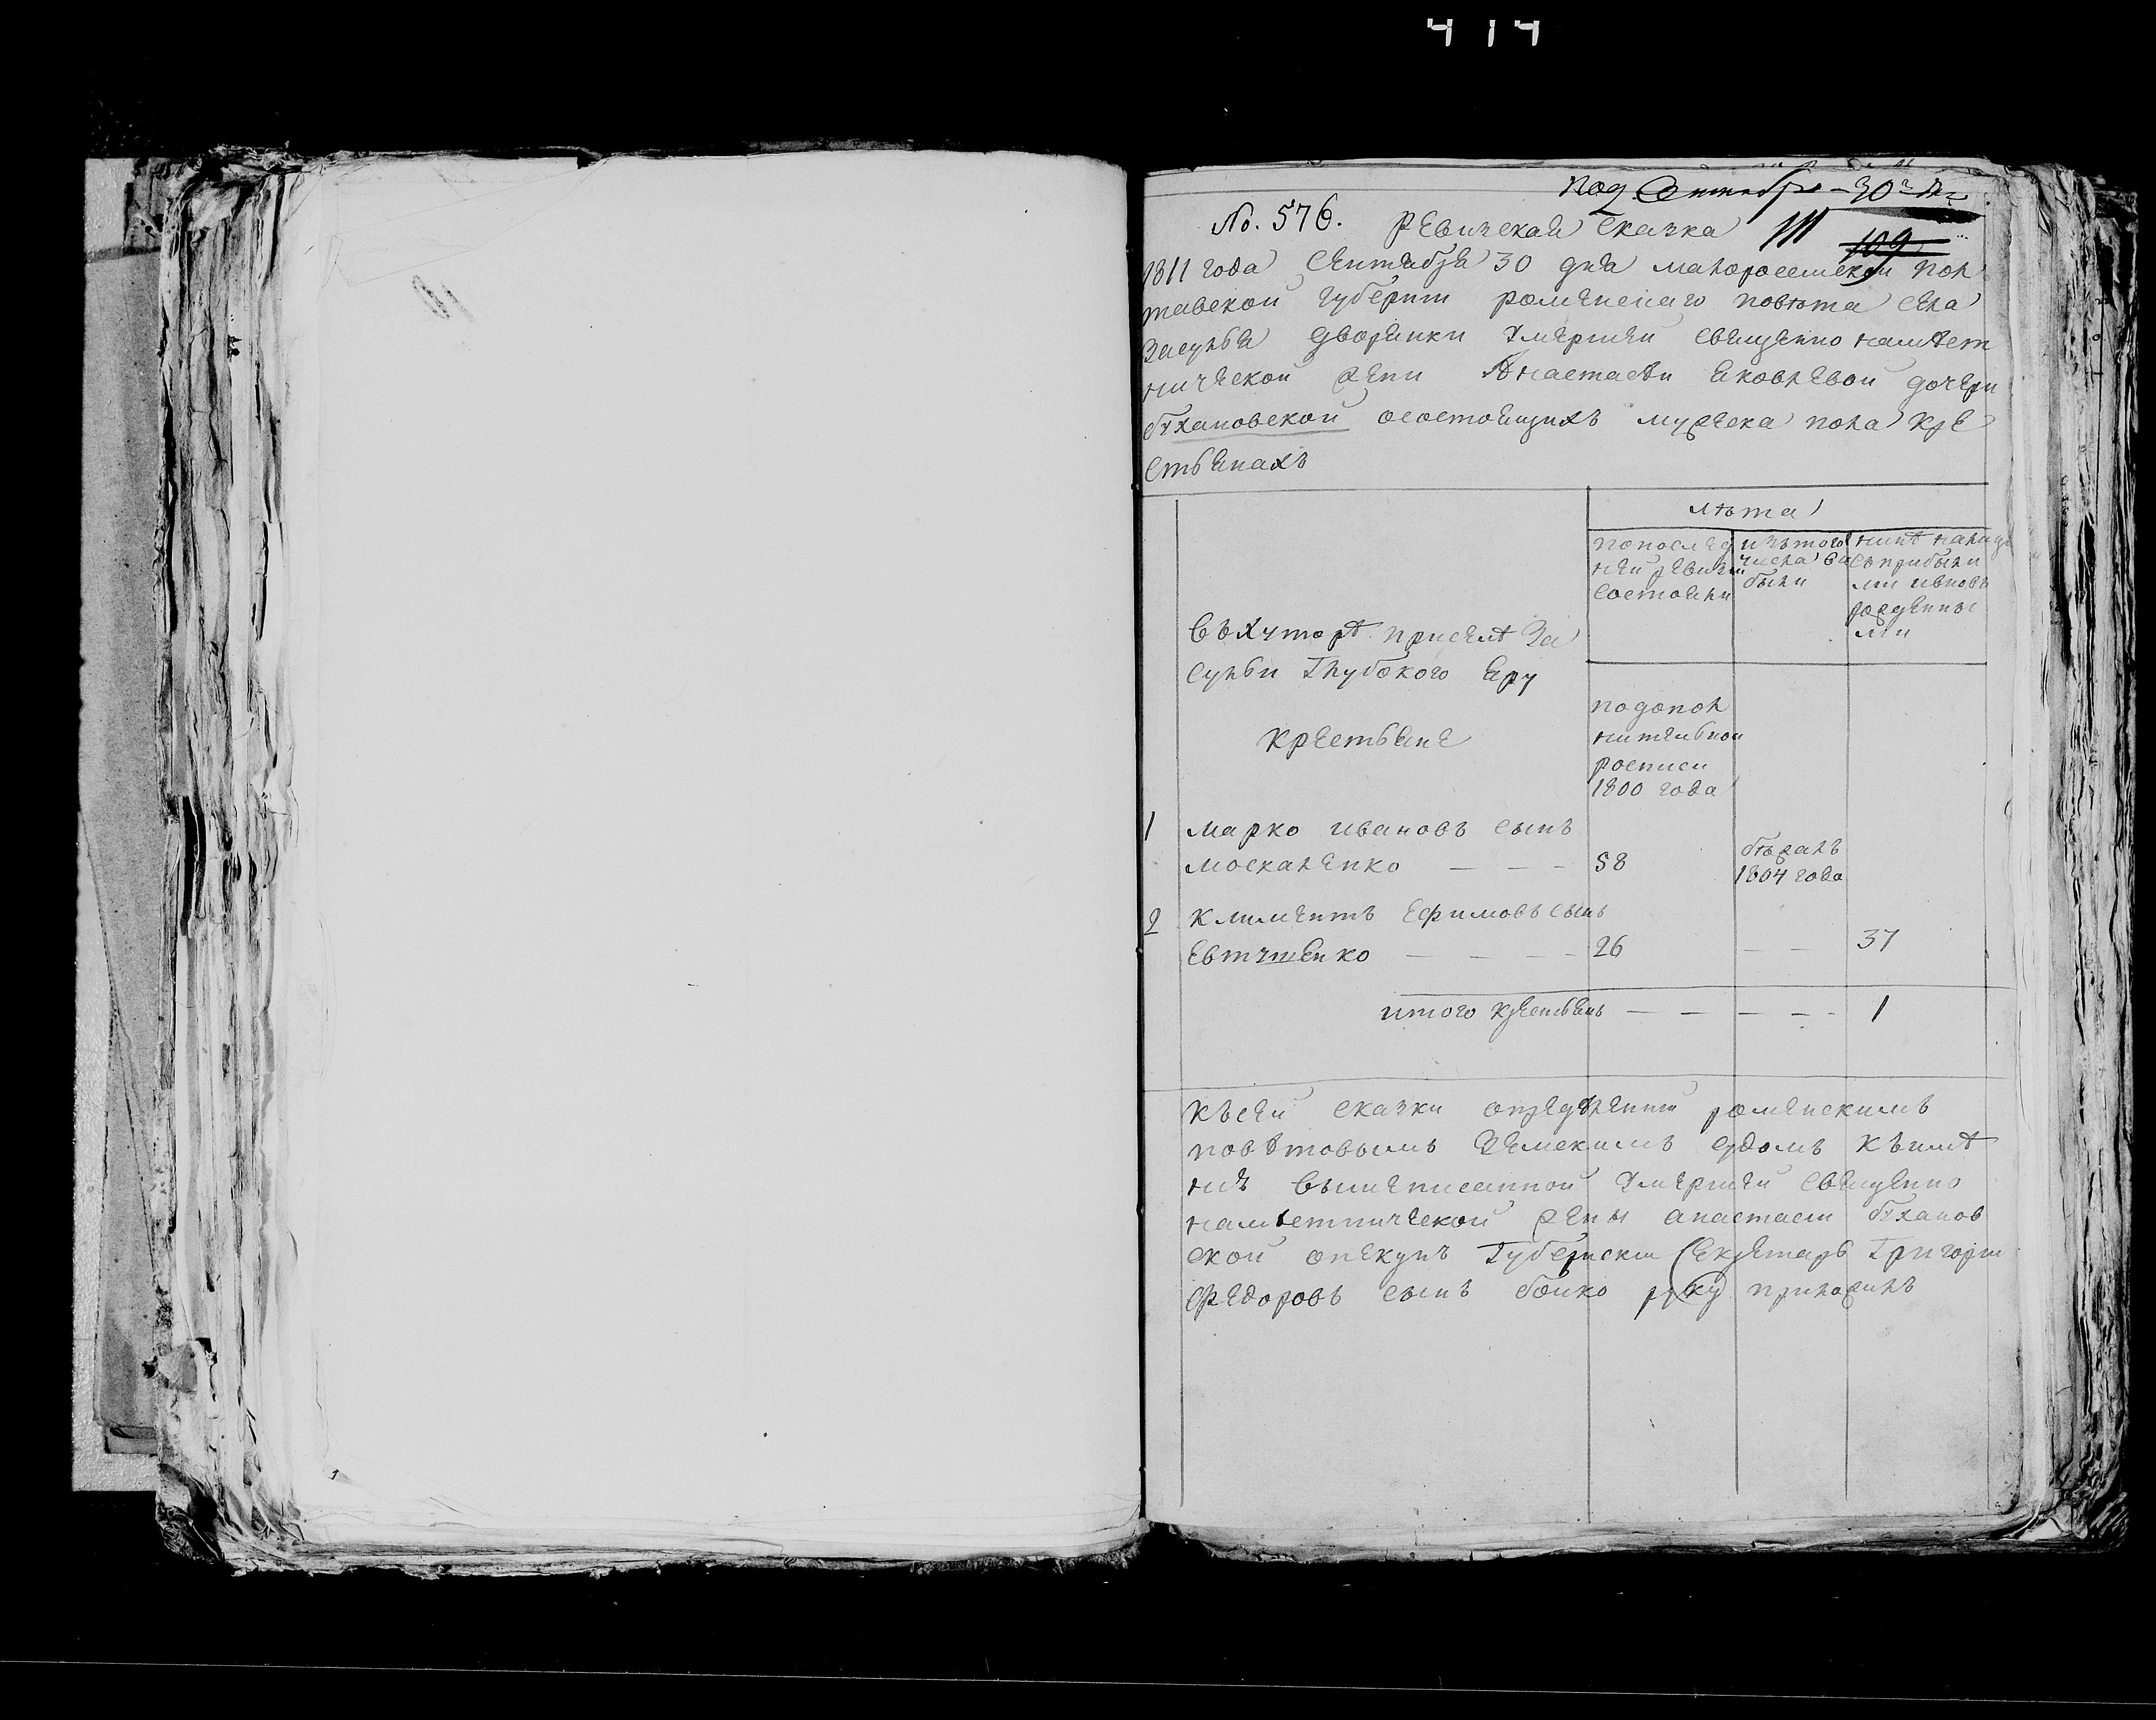 414
Под. Сентября 30го д
No. 576. Ревизская сказка 111 109
1811 года Сентября 30 дня малоросийской пол
тавской губернии роменскаго повѣта села
Засулья дворянки умершей священно намѣст
нической жени Анастасѣи Яковлевой дочери
бѣхановской осостоящихъ мужеска пола кре
стьянахъ
лѣта
попослед
ней ревизи
состояли
изътого
числа вы
были
ннѣ налице
съприбыли
ми ивновь
рожденны
ми
въхуторѣ приселѣ За
сульи Глубокого Яру
крестьяне
подопол
нительной
росписи
1800 года
1 марко ивановъ сынъ
москаленко — — — 58 бѣжалъ
1804 года
2 климентъ Ефимовъ сынъ
Евтушенко — — — — 26 — — 37
итого крестьянъ — — — — — 1
късей сказки опредѣленни роменскимъ
повѣтовымъ земскимъ судомъ къимѣ
нію вышеписанной умершей священно
намѣстнической жены анастасіи бѣханов
ской опекунъ Губернски Секретарь Григори
Федоровъ сынъ бойко руку приложилъ